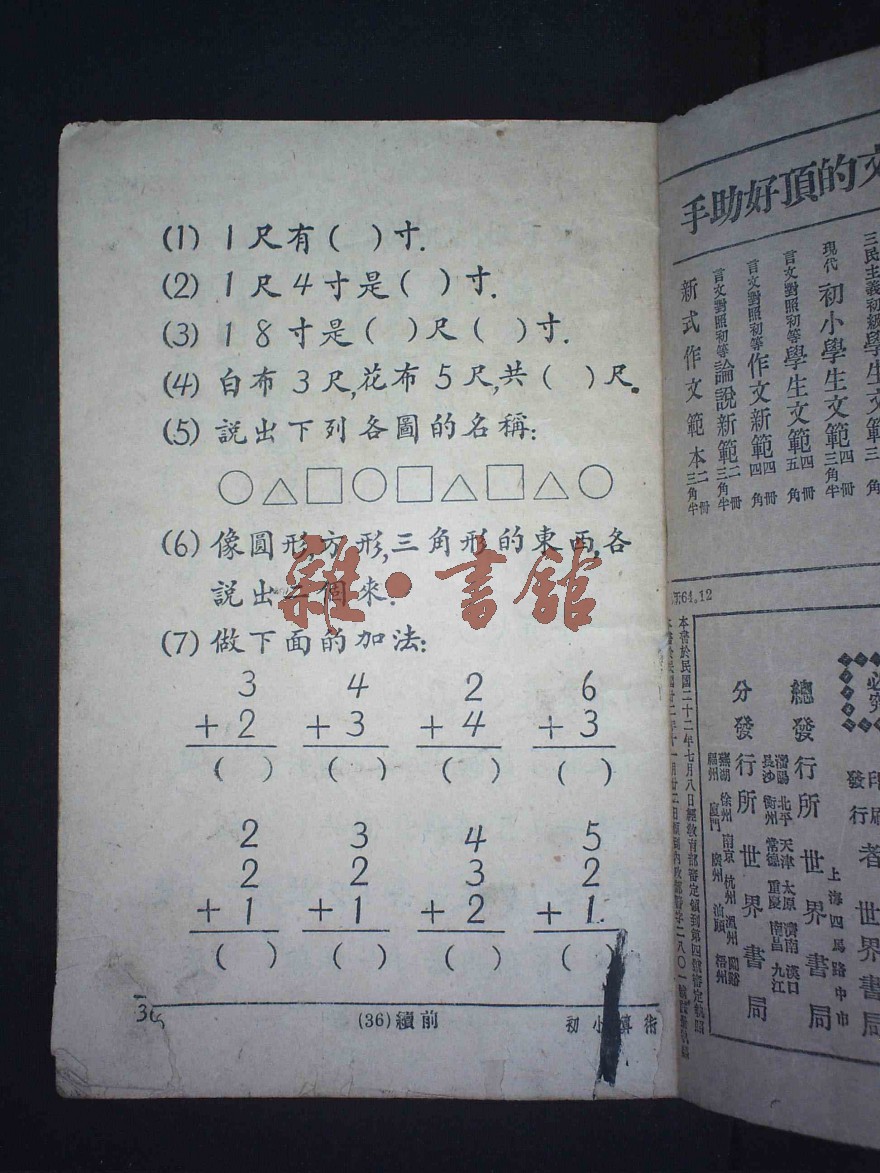 (1) 1尺有( )寸.
(2) 1尺4寸是( )寸.
(3) 18寸是( )尺( )寸.
(4) 白布3尺,花布5尺,共( )尺。
(5) 說出下列各圖的名稱:
(6) 像圓形,方形,三角形的東西,各
說出二個來.
(7) 做下面的加法:
3 4 2 6
+2 +3 +4 +3
( ) ( ) ( ) ( )
2 3 4 5
2 2 3 2
+1 +1 +2 +1
( ) ( ) ( ) ( )
36
(36)續前
初小算術
雜·書館
手助好頂的文
三民主義初級學生文範
現代初小學生文範 四冊 三角半
言文對照初等學生文範 四冊 五角
言文對照初等作文新範 四冊 四角
言文對照初等論說新範 二冊 三角半
新式作文範本 二冊 三角半
64.12
必究
印刷
發行 者 世界書局
上海四馬路中市
總發行所 世界書局
瀋陽 北平 天津 太原 濟南 漢口
長沙 衡州 常德 重慶 南昌 九江
分發行所 世界書局
蕪湖 徐州 南京 杭州 溫州
福州 廈門 廣州 汕頭 梧州
本書於民國二十二年七月八日經教育部審定領到第四號審定執照